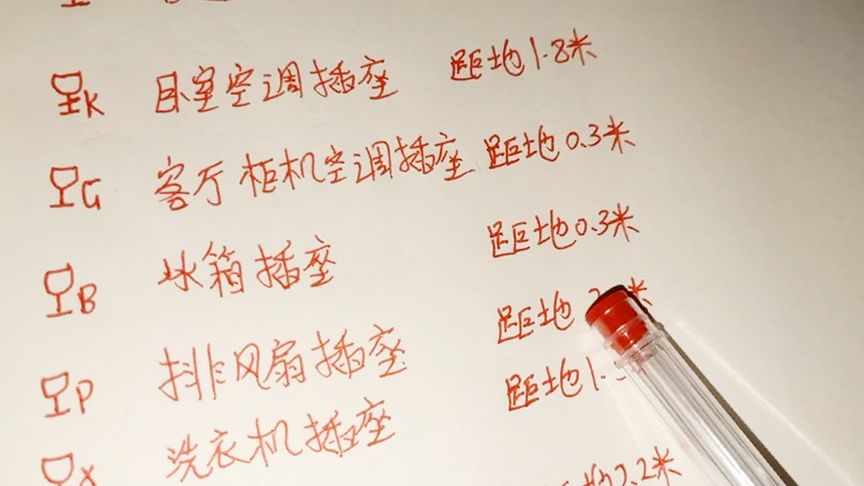 K 卧室空调插座 距地1.8米
G 客厅柜机空调插座 距地0.3米
B 冰箱插座 距地0.3米
P 排风扇插座 距地 米
X 洗衣机插座 距地1.
2.2米